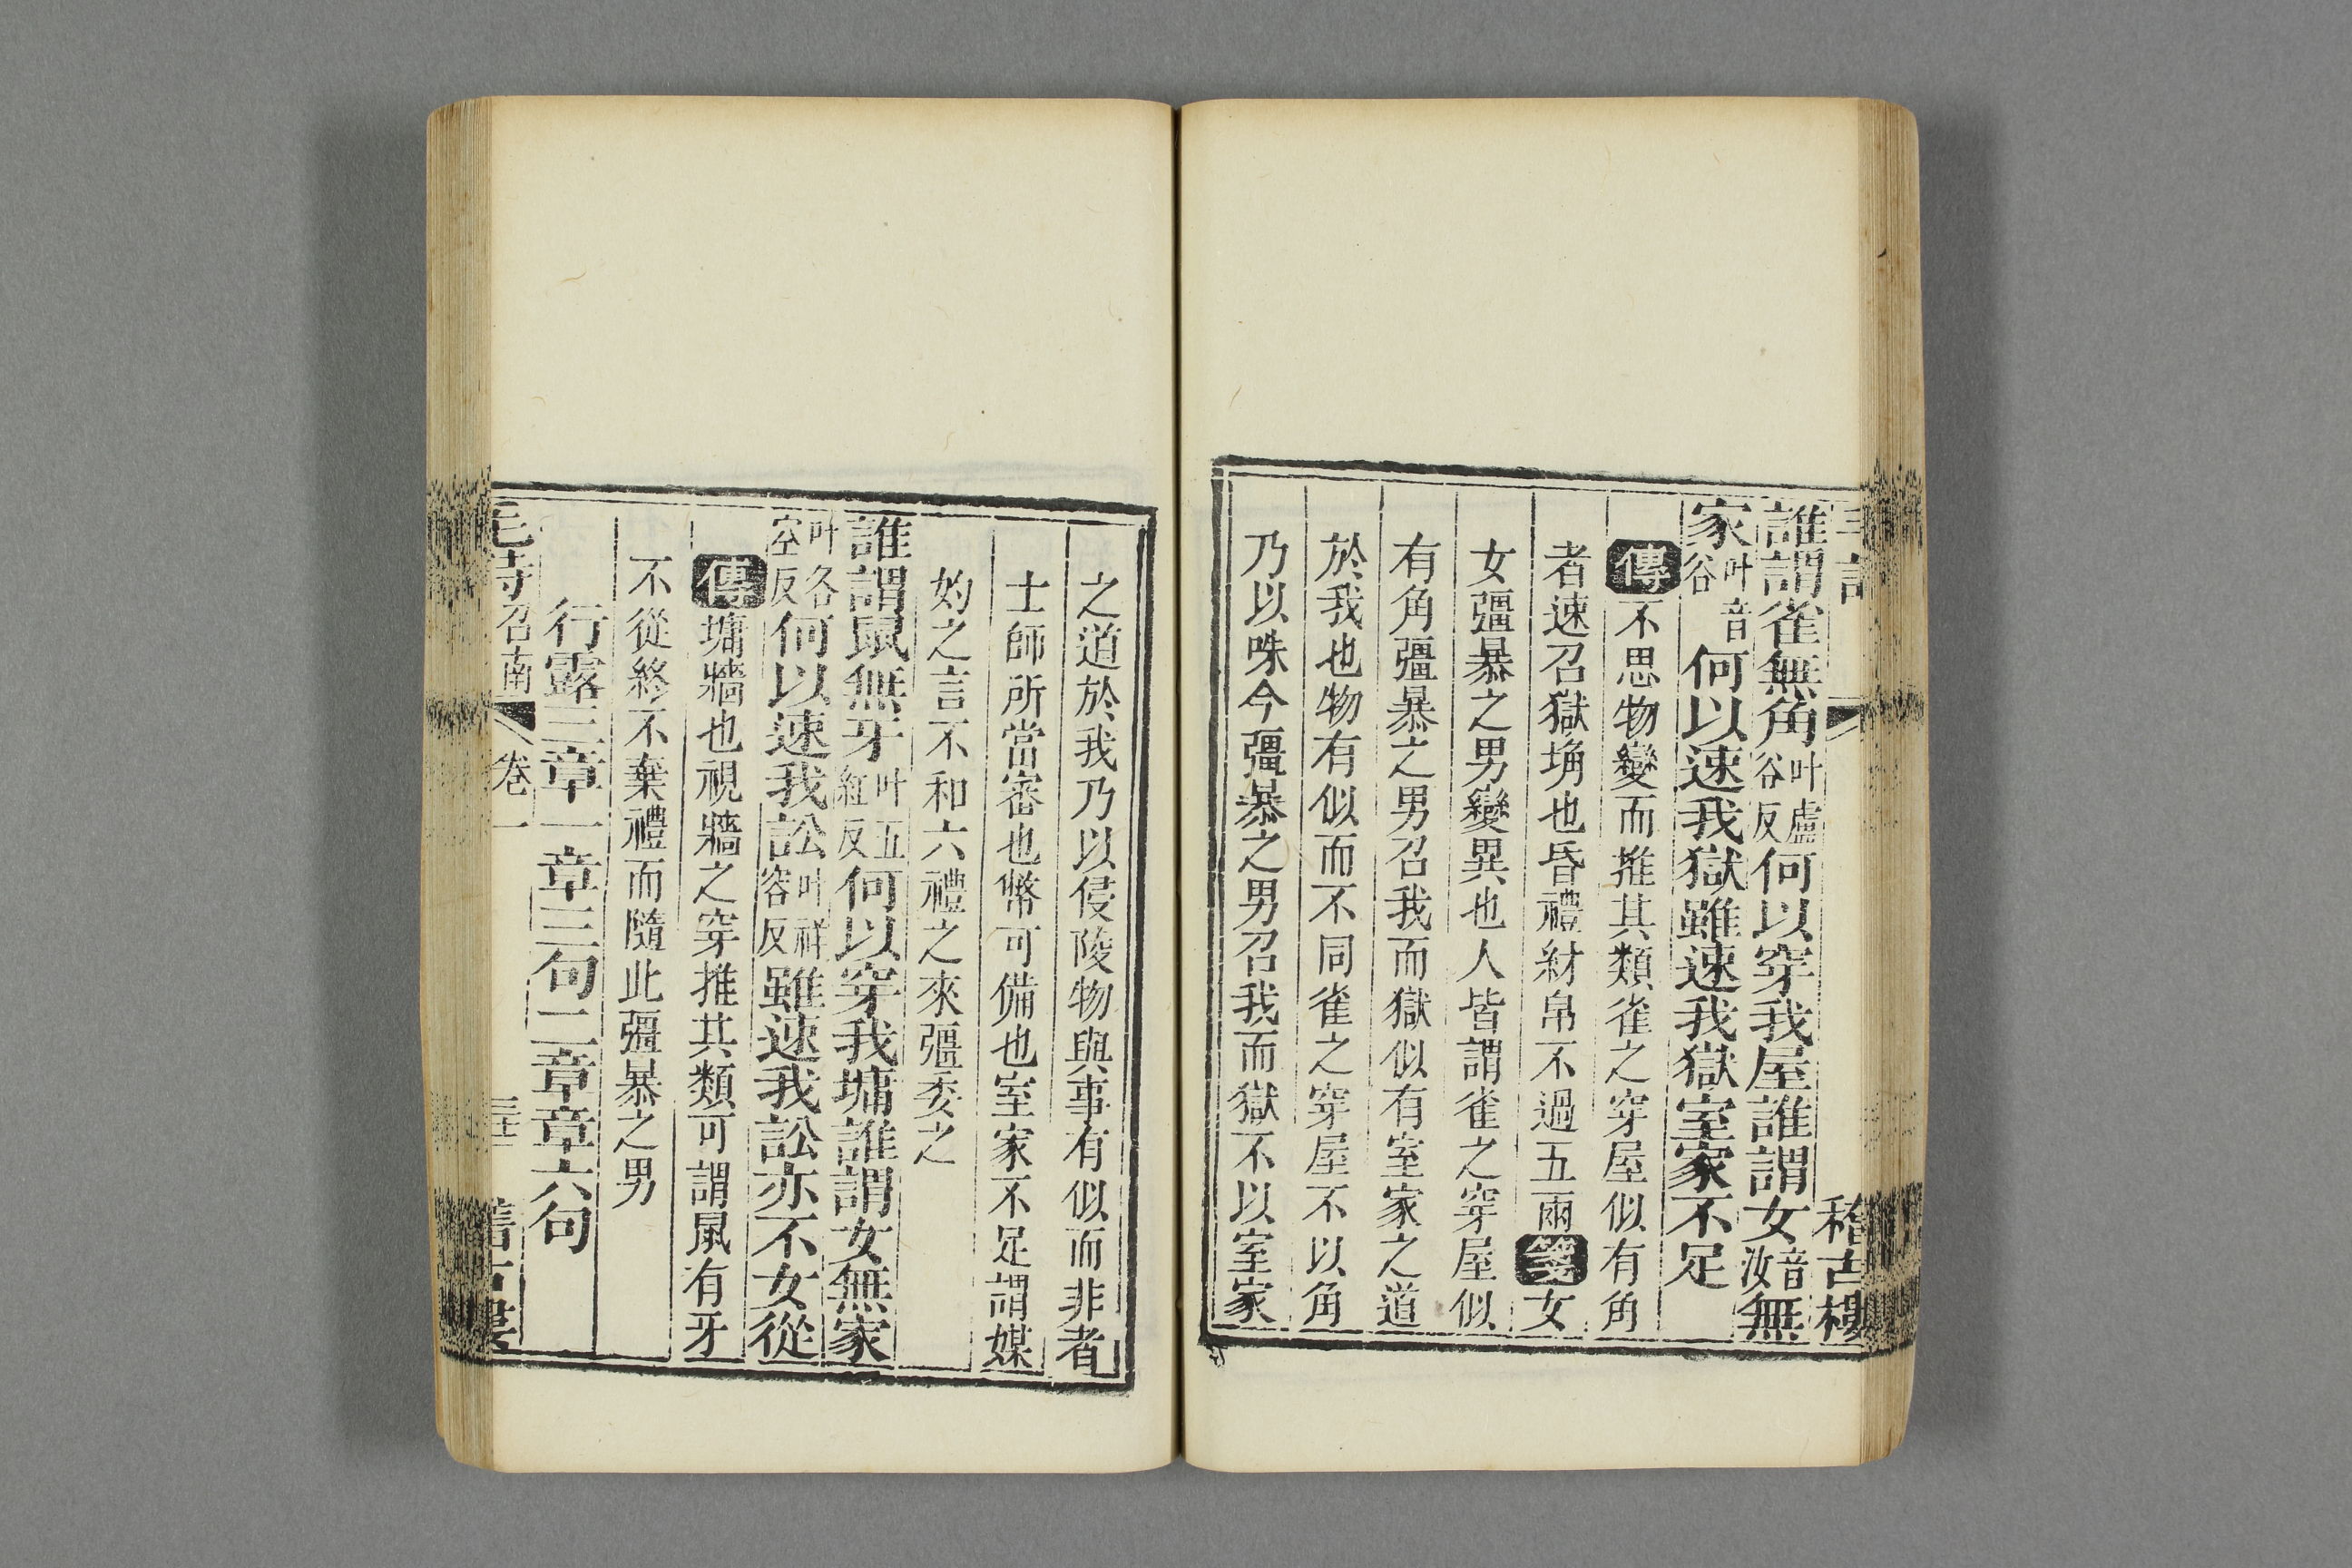 誰謂雀無角叶盧谷反何以穿我屋誰謂女音汝無
家叶音谷何以速我獄雖速我獄室家不足
傳不思物變而推其類雀之穿屋似有角
者速召獄埆也昏禮紂帛不過五兩箋女
女彊暴之男變異也人皆謂雀之穿屋似
有角彊暴之男召我而獄似有室家之道
於我也物有似而不同雀之穿屋不以角
乃以咮今彊暴之男召我而獄不以室家
稽古樓
之道於我乃以侵陵物與事有似而非者
士師所當審也幣可備也室家不足謂媒
妁之言不和六禮之來彊委之
誰謂鼠無牙叶五紅反何以穿我墉誰謂女無家
叶各空反何以速我訟叶祥容反雖速我訟亦不女從
傳墉牆也視牆之穿推其類可謂鼠有牙
不從終不棄禮而隨此彊暴之男
行露三章一章三句二章章六句
毛詩召南 卷一